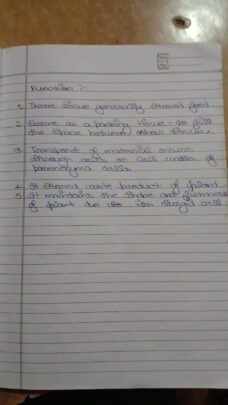 Function :-
1. These tissue generally stored food
2. Serve as a packing tissue to fill
the space between other tissue.
3. Transport of material occurs
through cells or cell of
parenchyma cells
4. It stored waste product of plant
5. It maintains the shape and firmness
of plant due its turgid cell